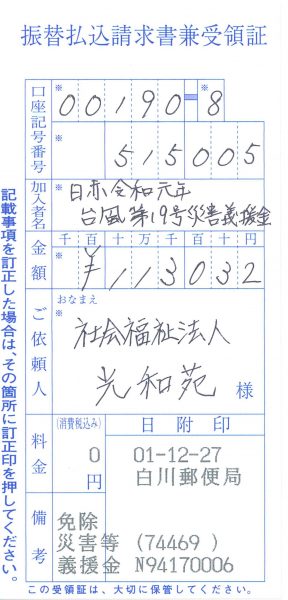 振替払込請求書兼受領証
口座記号番号
※
00190-8
※
515005
加入者名
※
日赤令和元年
台風第19号災害義援金
金額
千百十万千百十円
※
¥113032
ご依頼人
おなまえ
※
社会福祉法人
光和苑 様
料金
(消費税込み)
0
円
日附印
01-12-27
白川郵便局
備考
免除
災害等 (74469 )
義援金 N94170006
この受領証は、大切に保管してください。
記載事項を訂正した場合は、その箇所に訂正印を押してください。